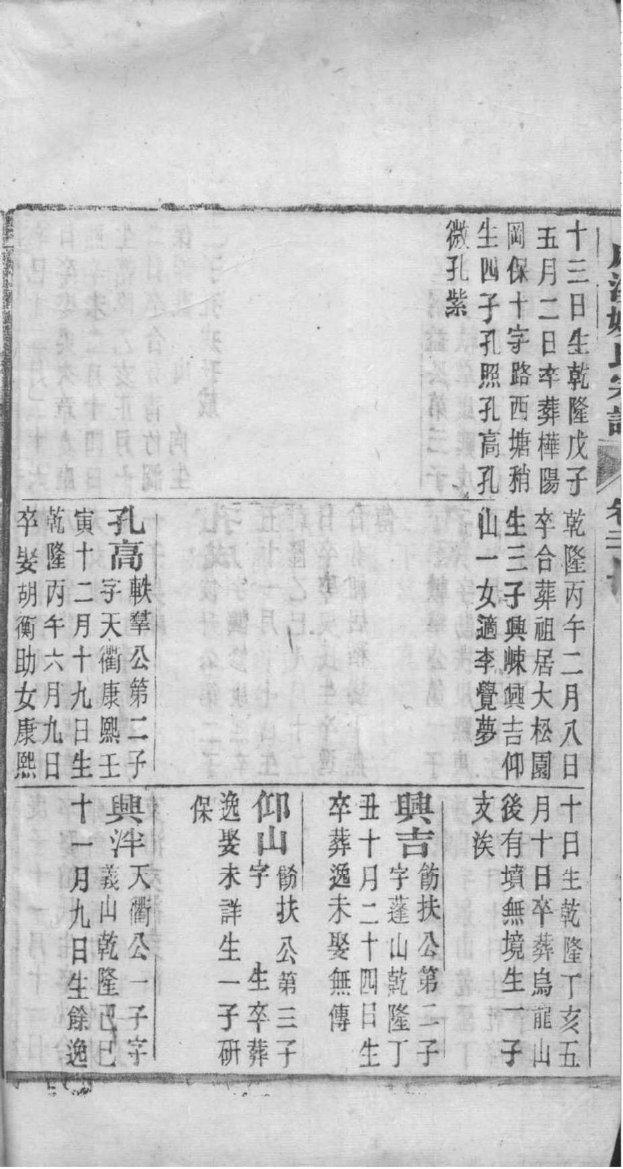 氏宗譜
卷三
十三日生乾隆戊子
五月二日卒葬樺陽
岡保十字路西塘稍
生四子孔照孔高孔
微孔紫
乾隆丙午二月八日
卒合葬祖居大松園
生三子興㑛興吉仰
山一女適李覺夢
孔高
軼羣公第二子
字天衢康熙壬
寅十二月十九日生
乾隆丙午六月九日
卒娶胡衡助女康熙
十日生乾隆丁亥五
月十日卒葬烏龍山
後有墳無境生一子
支涘
興吉
餙扶公第二子
字蓬山乾隆丁
丑十月二十四日生
卒葬逸未娶無傳
仰山
餙扶公第三子
字 生卒葬
逸娶未詳生一子研
保
興泮
天衢公一子字
義山乾隆己巳
十一月九日生餘逸